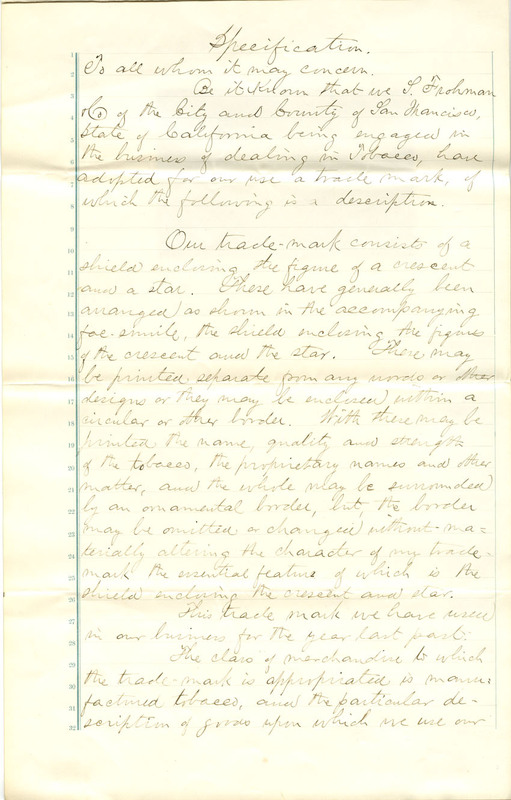 Specification.
To all whom it may concern.
Be it Known that we S. Frohman
& Co of the City and County of San Francisco,
State of California being engaged in
the business of dealing in Tobacco, have
adopted for our use a trade mark, of
which the following is a description.
Our trade-mark consists of a
shield enclosing the figure of a crescent
and a star. These have generally been
arranged as shown in the accompanying
fac-simile, the shield enclosing the figures
of the crescent and the star. These may
be printed separate from any words or other
designs or they may be enclosed within a
circular or other border. With these may be
printed the name, quality and strength
of the tobacco, the proprietary names and other
matter, and the whole may be surrounded
by an ornamental border, but, the border
may be omitted or changed without ma=
terially altering the character of my trade-
mark the essential feature of which is the
shield enclosing the crescent and star.
This trade mark we have used
in our business for the year last past.
The class of merchandise to which
the trade-mark is appropriated is manu-
factured tobacco, and the particular de-
scription of goods upon which we use our